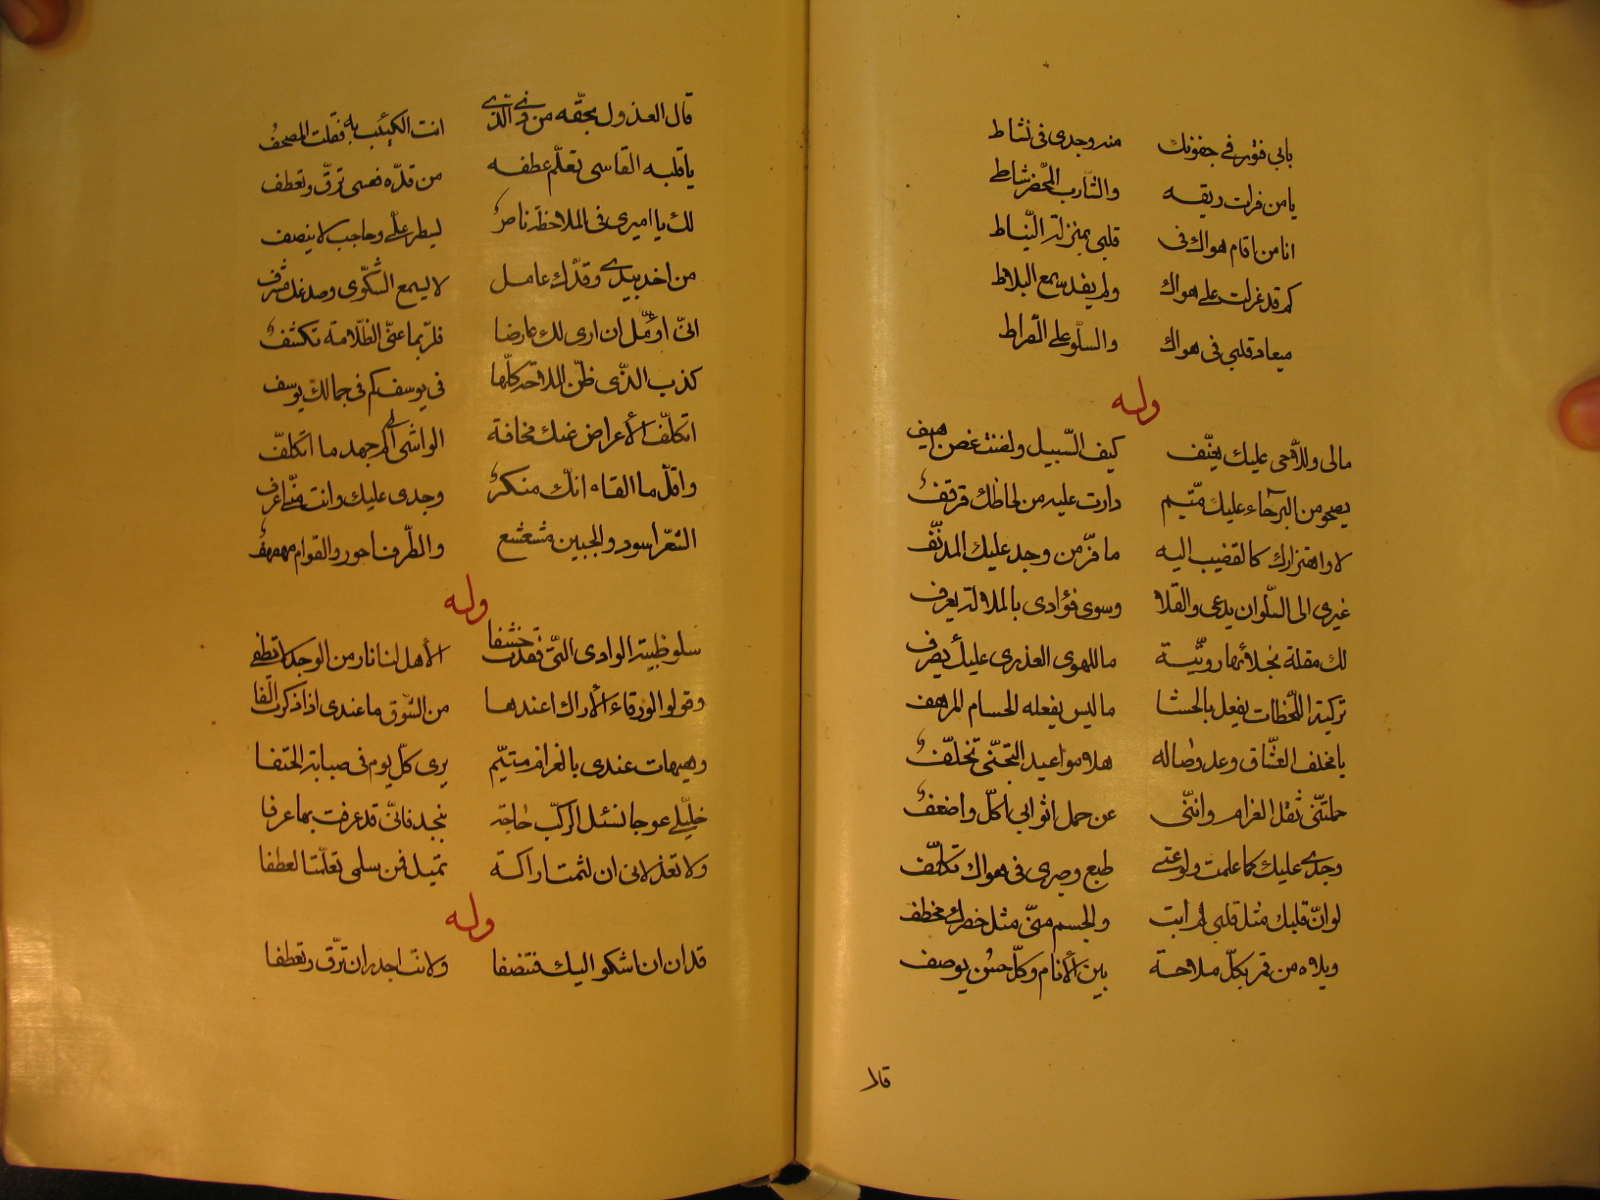 بابي فتور في جفونك منه وجدي في نشاط
يا من فرات ريقه والشارب المخضر شاط
انا من اقام هواك في قلبي بمنزلة النياط
كم قد غزلت على هواك ولم يفد بمع البلاط
ميعاد قلبي في هواك والسلو على الصراط
وله
مالي وللاحي عليك يعنف كيف السبيل ولفنت غصن اهيف
يصحو من البرحاء عليك متيم دارت عليه من لحاظك قرقف
لا واهتزازك كالقضيب اليه ما فر من وجد عليك المدنف
غيري الى السلوان يدعى والقلا وسوى فؤادي بالملالة يعرف
لك مقلة نجلا ئها روتية ما للهوى العذري عليك يصرف
تركية اللحظات يفعل بالحشا ما ليس يفعله الحسام المرهف
يا مخلف العشاق وعد وصاله هلا مواعيد التجني تخلف
حملتني ثقل الغرام وانني عن حمل اثوابي اكل واضعف
وجدي عليك كما علمت ولوعتي طبع وصبري في هواك تكلف
لو ان قلبك مثل قلبي لم ابت والجسم مني مثل خصرك مخطف
ويلاه من قمر بكل ملاحة بين الأنام وكل حسن يوصف
قال
قال العذول بحقه من في الذي انت الكئيب به فقلت المصحف
يا قلبه القاسي تعلم عطفه من قده فعسى ترق وتعطف
لك يا اميري في الملاحظة ناصر ليطر علي وحاجب لا ينصف
من اخذ بيدي وقدك عامل لا يسمع الشكوى وصدغك مشرف
اني اؤمل ان ارى لك عارضا فلربما عني الظلامة تكشف
كذب الذي ظن الملاحة كلها في يوسف كم في جمالك يوسف
اتكلف الأعراض عنك مخافة الواشي الى كم جهد ما اتكلف
واقل ما القاه انك منكر وجدي عليك وانت مني اعرف
الشعر اسود والجبين مشعشع والطرف احور والقوام مهفهف
وله
سلو ظبية الوادي التي فقدت خشفا الأهل لنا نار من الوجد لا تطفى
وقولو الورقاء الأراك اعندها من الشوق ما عندي اذا ذكرت الفا
وهيهات عندي بالغرام متيم يرى كل يوم في صبابته الحتفا
خليلي عوجا نسئل الركب حاجة بنجد فاني قد عرفت بها عرفا
ولا تعذلاني ان لثمت اراكة تميل فمن سلمى تعلمت العطفا
وله
قد ان ان اشكو اليك فتنصفا ولانت اجدر ان ترق وتعطفا